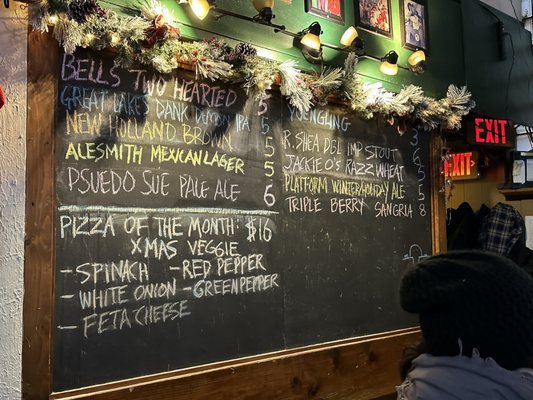 BELLS TWO HEARTED 5
GREAT LAKES DANK WOOD IPA 5
NEW HOLLAND BROWN 5
ALESMITH MEXICAN LAGER 5
PSUEDO SUE PALE ALE 6
PIZZA OF THE MONTH: $16
XMAS VEGGIE
- SPINACH - RED PEPPER
- WHITE ONION - GREEN PEPPER
- FETA CHEESE
YUENGLING 3
R. SHEA DBL IMP STOUT 6
JACKIE O'S RAZZ WHEAT 5
PLATFORM WINTER HOLIDAY ALE 5
TRIPLE BERRY SANGRIA 8
EXIT
EXIT